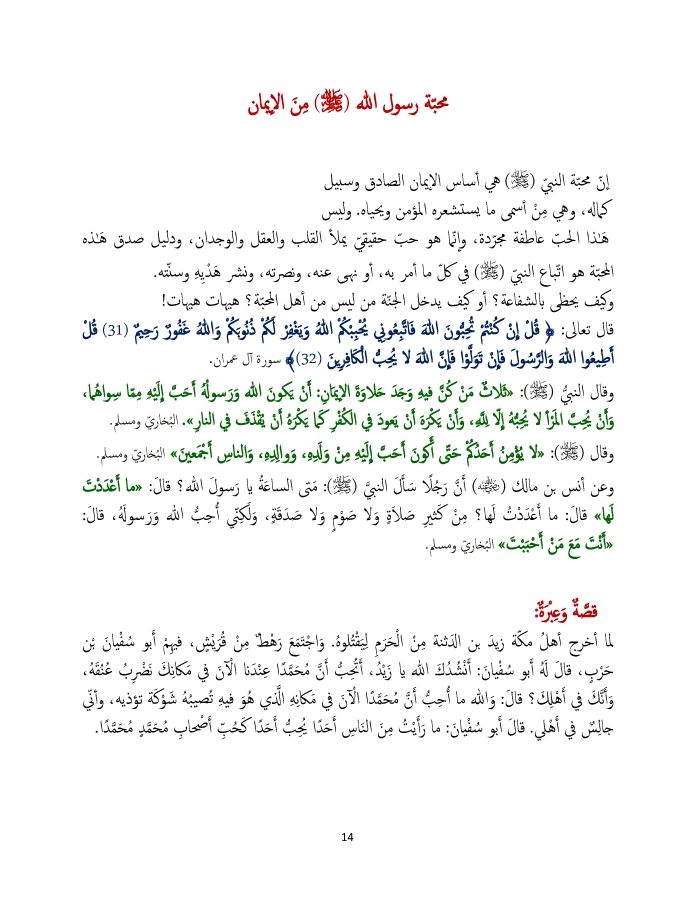 محبّة رسول الله (ﷺ) مِنَ الإيمان
إنّ محبّة النبيّ (ﷺ) هي أساس الإيمان الصادق وسبيل
كماله، وهي مِنْ أسمى ما يستشعره المؤمن ويحياه. وليس
هَذا الحبّ عاطفة مجرّدة، وإنّما هو حبّ حقيقيّ يملأ القلب والعقل والوجدان، ودليل صدق هَذه
المحبّة هو اتّباع النبيّ (ﷺ) في كلّ ما أمر به، أو نهى عنه، ونصرته، ونشر هَدْيِهِ وسنّته.
وكيف يحظى بالشفاعة؟ أو كيف يدخل الجنّة من ليس من أهل المحبّة؟ هيهات هيهات!
قال تعالى: ﴿ قُلْ إِن كُنْتُمْ تُحِبُّونَ اللهَ فَاتَّبِعُونِي يُحْبِبْكُمْ اللهُ وَيَغْفِرْ لَكُمْ ذُنُوبَكُمْ وَاللهُ غَفُورٌ رَحِيمٌ (31) قُلْ
أَطِيعُوا اللهَ وَالرَّسُولَ فَإِنْ تَوَلَّوْا فَإِنَّ اللهَ لا يُحِبُّ الْكَافِرِينَ (32)﴾ سورة آل عمران.
وقال النبيُّ (ﷺ): «ثَلاثٌ مَنْ كُنَّ فيهِ وَجَدَ حَلاوَةَ الإيمَانِ: أَنْ يَكونَ الله وَرَسولُهُ أَحَبَّ إلَيْهِ مِمّا سِواهُما،
وَأَنْ يُحِبَّ المَرْأَ لا يُحِبُّهُ إلّا لِلَّهِ، وَأَنْ يَكْرَهَ أَنْ يَعودَ في الكُفْرِ كَما يَكْرَهُ أَنْ يُقْذَفَ في النارِ». البُخاريّ ومسلم.
وقال (ﷺ): «لا يُؤْمِنُ أَحَدُكُمْ حَتّى أَكونَ أَحَبَّ إلَيْهِ مِنْ وَلَدِهِ، وَوالِدِهِ، وَالناسِ أَجْمَعينَ» البُخاريّ ومسلم.
وعن أنس بن مالك (رضي الله عنه) أَنَّ رَجُلًا سَأَلَ النبيَّ (ﷺ): مَتى الساعَةُ يا رَسولَ الله؟ قالَ: «ما أَعْدَدْتَ
لَها» قالَ: ما أَعْدَدْتُ لَها؟ مِنْ كَثيرِ صَلاةٍ وَلا صَوْمٍ وَلا صَدَقَةٍ، وَلَكِنّي أُحِبُّ الله وَرَسولَهُ، قالَ:
«أَنْتَ مَعَ مَنْ أَحْبَبْتَ» البُخاريّ ومسلم.
قصَّةٌ وَعِبْرَةٌ:
لما أخرج أهلُ مكّة زيدَ بن الدَثنة مِنْ الْحَرَمِ لِيَقْتُلوهُ. وَاجْتَمَعَ رَهْطٌ مِنْ قُرَيْشٍ، فيهِمْ أَبو سُفْيانَ بْن
حَرْبٍ، قالَ لَهُ أَبو سُفْيانَ: أَنْشُدُكَ الله يا زَيْدُ، أَتُحِبُّ أَنَّ مُحَمَّدًا عِنْدَنا الْآنَ في مَكانِكَ نَضْرِبُ عُنُقَهُ،
وَأَنَّكَ في أَهْلِكَ؟ قالَ: وَالله ما أُحِبُّ أَنَّ مُحَمَّدًا الْآنَ في مَكانِهِ الَّذي هُوَ فيهِ تُصيبُهُ شَوْكَة تؤذيه، وأنّي
جالِسٌ في أَهْلي. قالَ أَبو سُفْيانَ: ما رَأَيْتُ مِنَ النَاسِ أَحَدًا يُحِبُّ أَحَدًا كَحُبِّ أَصْحابِ مُحَمَّدٍ مُحَمَّدًا.
14